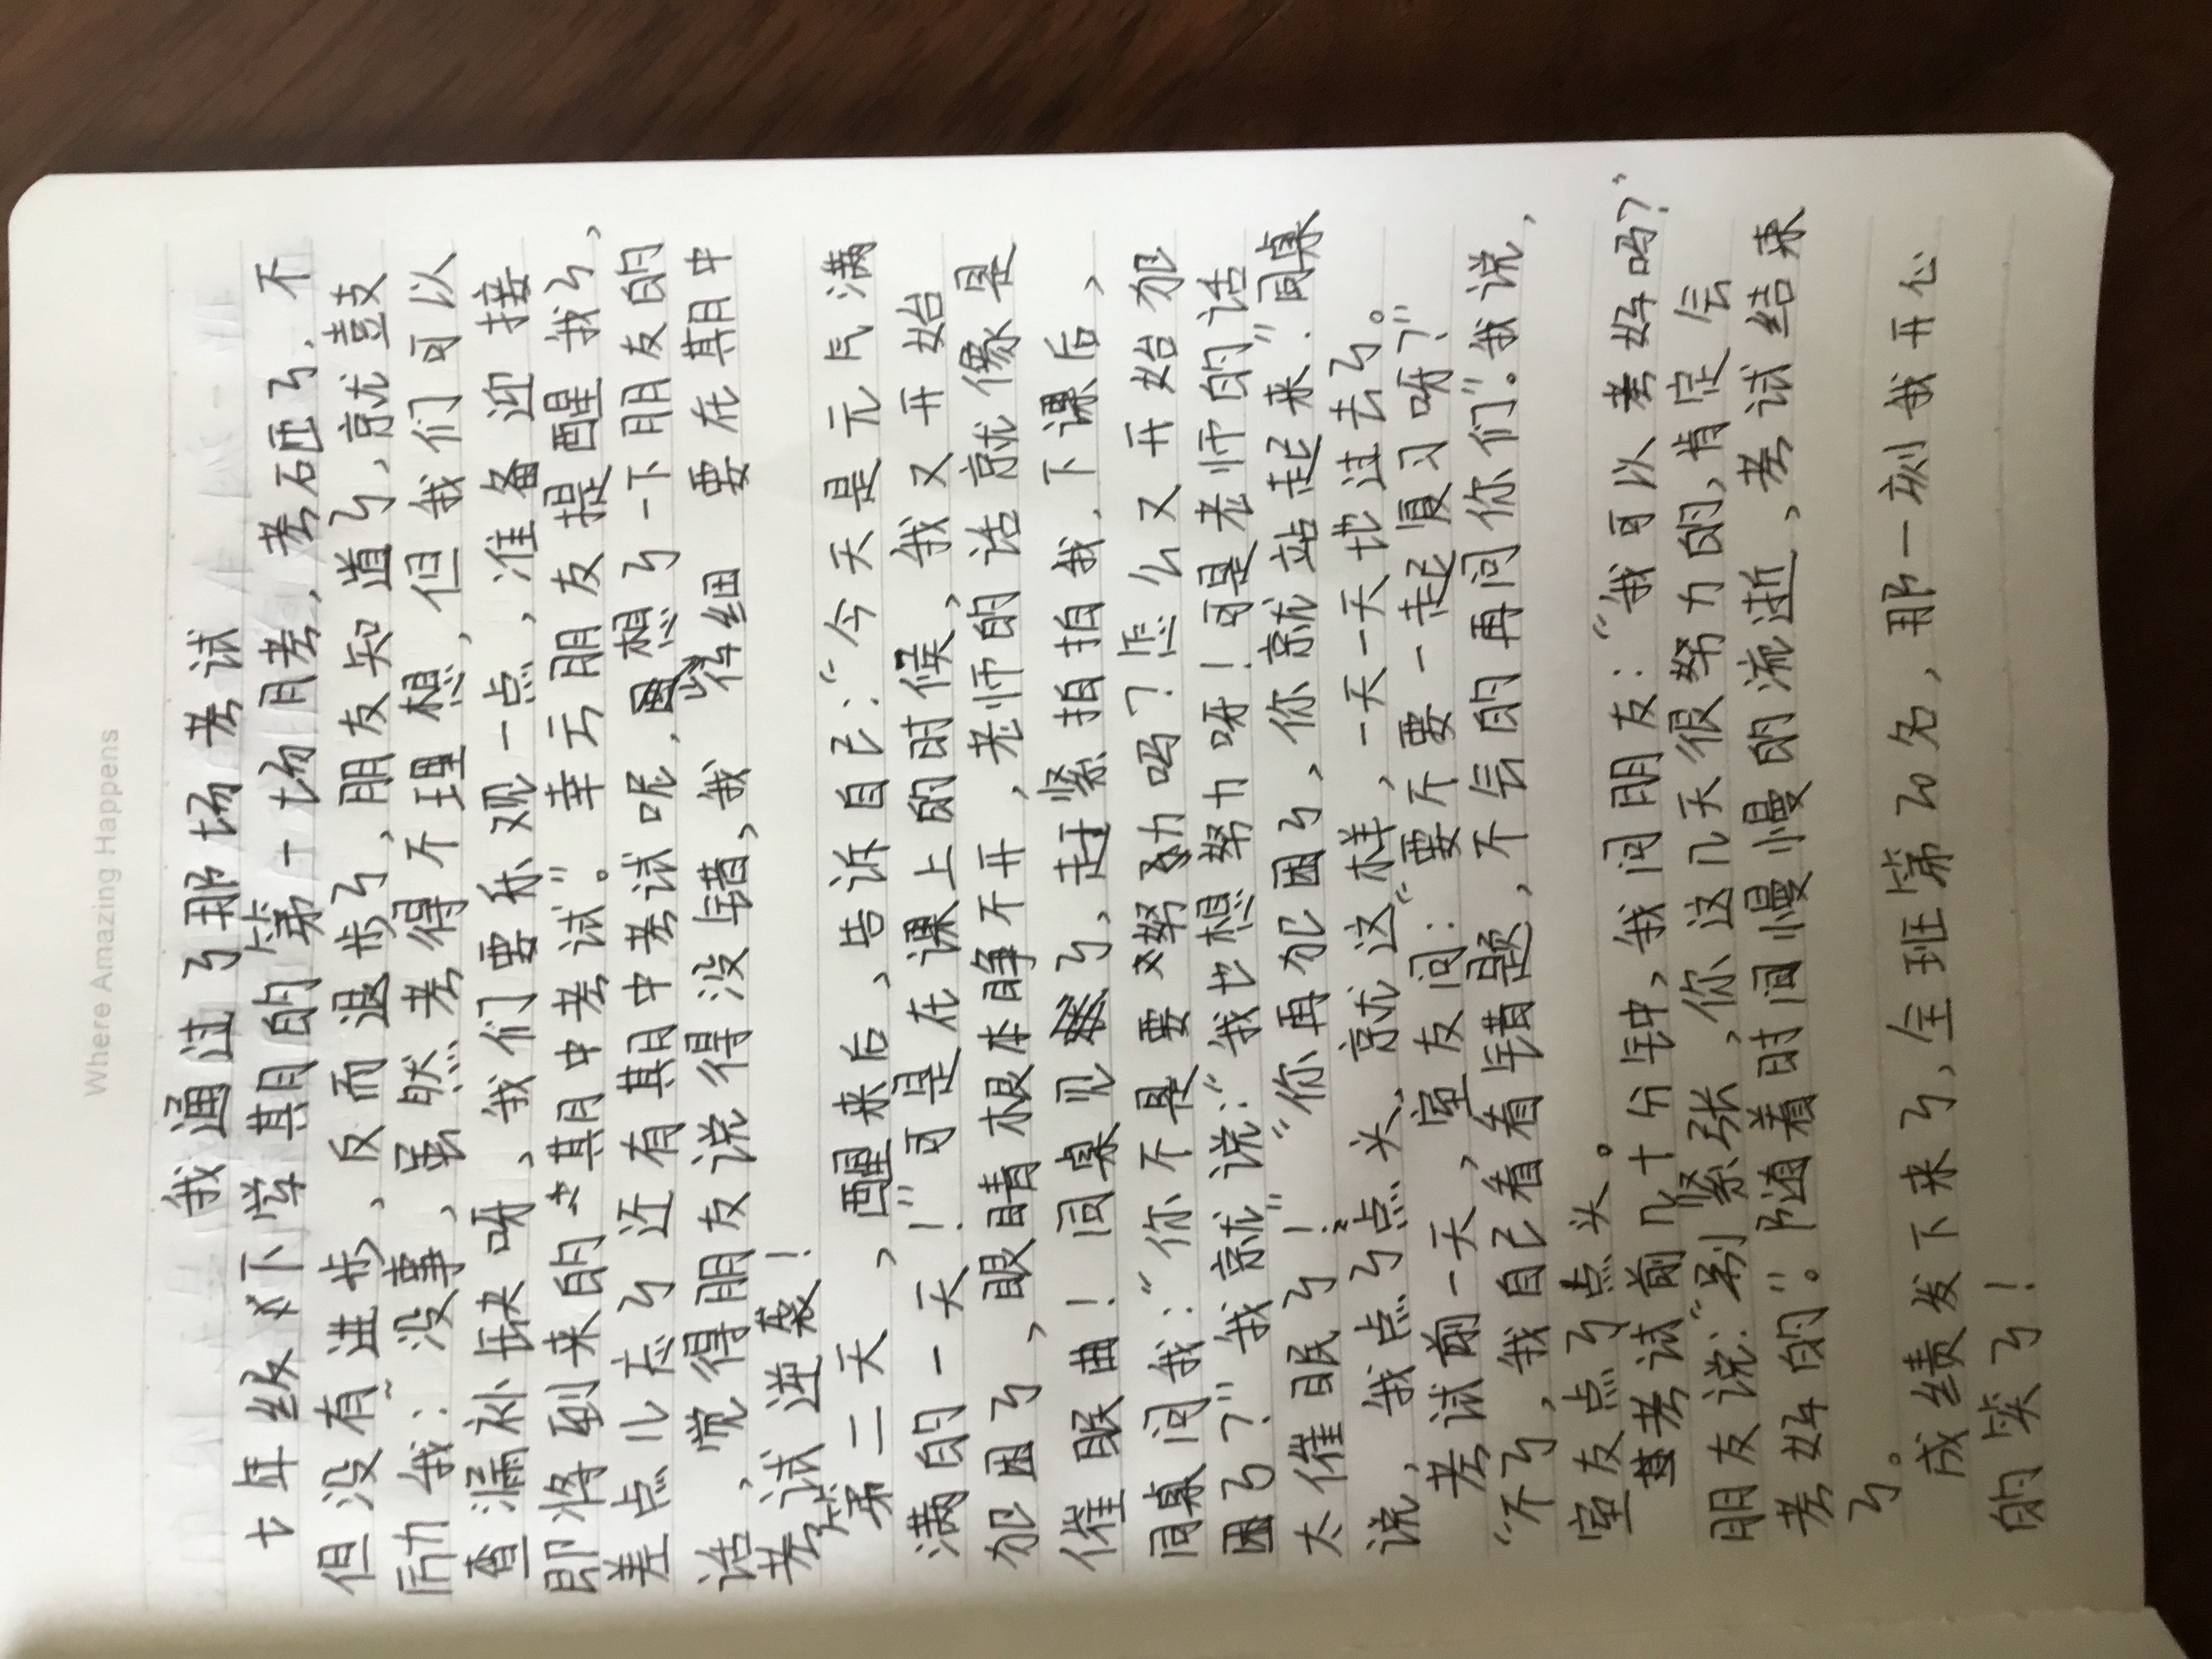 Where Amazing Happens
我通过了那场考试
七年级下学期的第一场月考，考砸了，不
但没有进步，反而退步了，朋友知道了，就鼓
励我：“没事，虽然考得不理想，但我们可以
查漏补缺呀，我们要乐观一点，准备迎接
即将到来的期中考试”。幸亏朋友提醒我了，
差点儿忘了还有期中考试呢，想了一下朋友的
话，觉得朋友说得没错，我 要在期中
考试逆袭！
第二天，醒来后，告诉自己：“今天是元气满
满的一天！”可是在课上的时候，我又开始
犯困了，眼睛根本睁不开，老师的话就像是
催眠曲！同桌见了，赶紧拍拍我，下课后，
同桌问我：“你不是要努力吗？怎么又开始犯
困了？”我就说：“我也想努力呀！可是老师的话
太催眠了！”“你再犯困了，你就站起来”同桌
说，我点了点头，就这样，一天一天地过去了。
考试前一天，室友问：“要不要一起复习呀？”
“不了，我自己看看错题，不会的再问你们”。我说，
室友点了点头。
考试前几十分钟，我问朋友：“我可以考好吗？”
朋友说：“别紧张，你这几天很努力的，肯定会
考好的”。随着时间慢慢的流逝，考试结束
了。
成绩发下来了，全班第20名，那一刻我开心
的笑了！